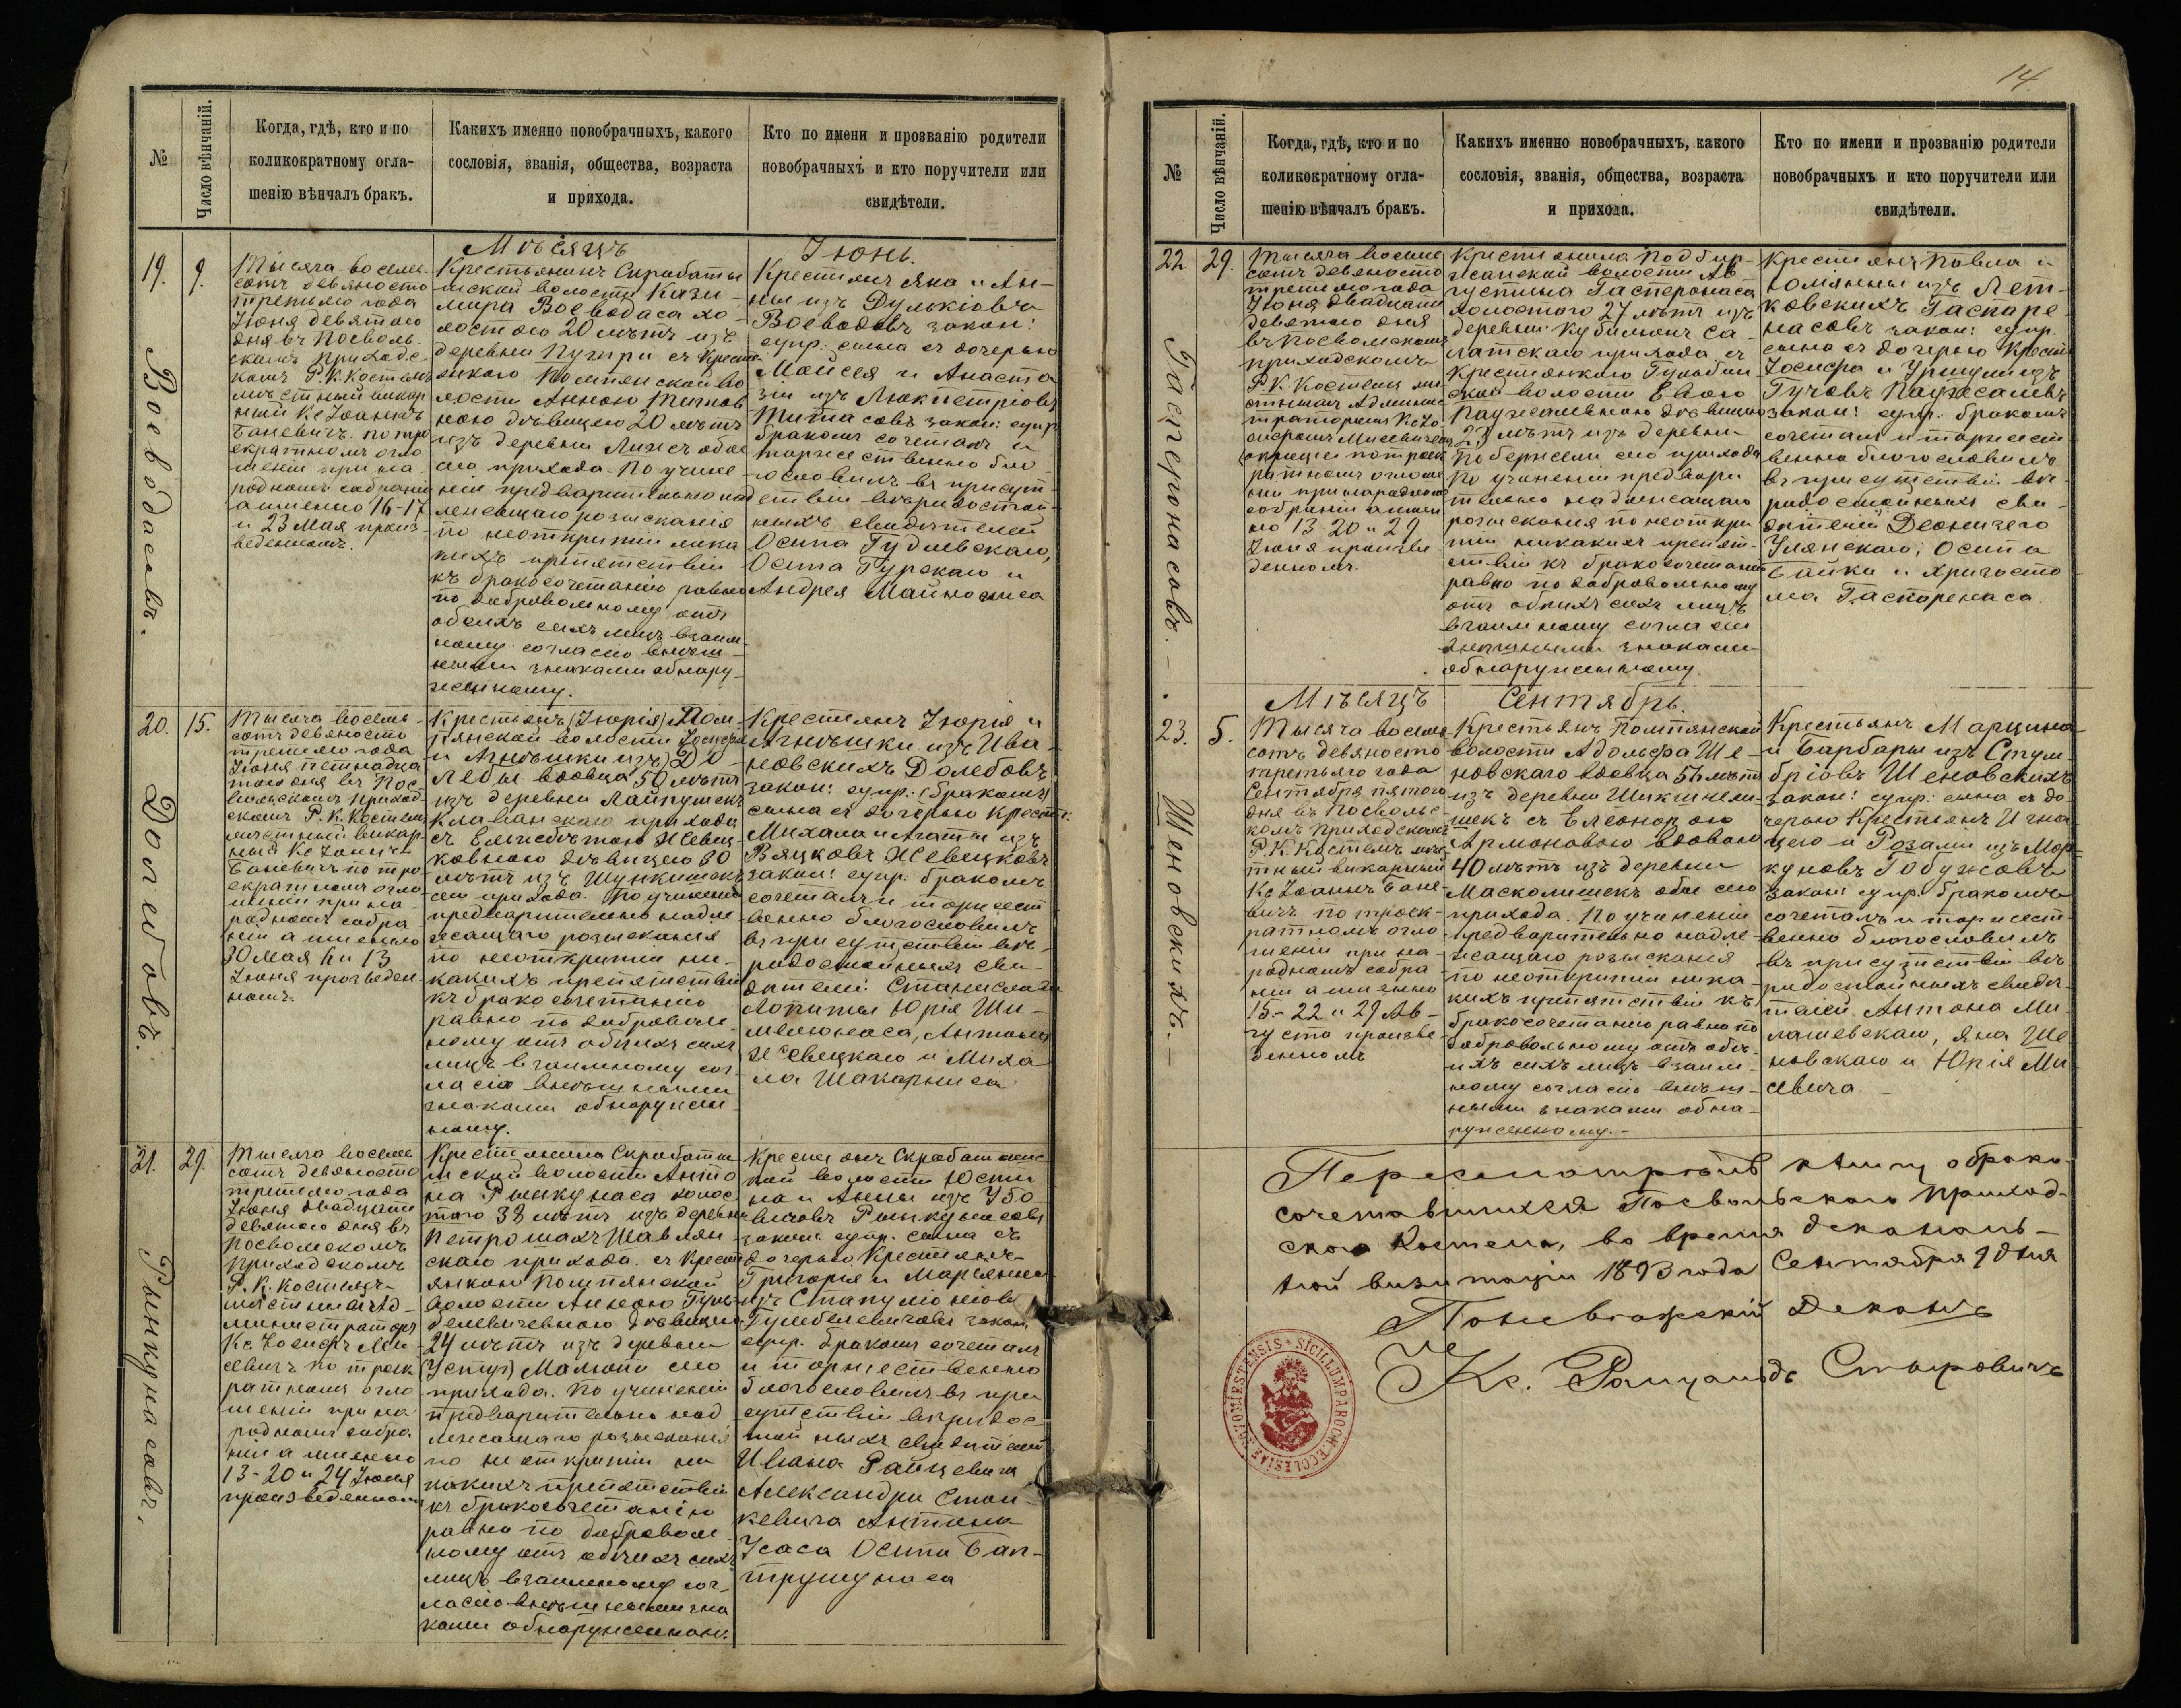 №
Число вѣнчаній.
Когда, гдѣ, кто и по
коликократному огла-
шенію вѣнчалъ бракъ.
Какихъ именно новобрачныхъ, какого
сословія, званія, общества, возраста
и прихода.
Кто по имени и прозванію родители
новобрачныхъ и кто поручители или
свидѣтели.
Мѣсяцъ Іюнь.
19. 9.
Воеводасовъ.
Тысяча восемь
сотъ девяносто
третьяго года
Іюня девятаго
дня въ Посволь
скомъ приходс
комъ Р. К. Костелѣ
мѣстный викар
ный Кс Іоаннъ
Баневичъ по тро
екратномъ огло
шеніи при на
родномъ собраніи
а именно 16-17
и 23 Мая произ
веденномъ.
Крестьянина Скробаты
шской волости Кази
мира Воеводаса хо
лостого 20 лѣтъ изъ
деревни Пузыри съ крест
янкою Помпянской во
лости Анною
ною дѣвицею 20 лѣтъ
изъ деревни обое
его прихода. По учине
ніи предварительно над
лежащаго розысканія
по неоткрытіи ника
кихъ препятствій
къ бракосочетанію равно
по добровольному отъ
обоихъ сихъ лицъ взаим
ному согласію внѣш
ними знаками обнару
женному.
Крестьянъ Яна и Ан-
ны изъ Дулькіовъ
Воеводовъ закон:
супр: сына съ дочерью
Мойсея и Анаста
зіи изъ
закон: супр
бракомъ сочеталъ и
торжественно бла
гословилъ въ присут
ствіи вѣридостой
ныхъ свидѣтелей
Осипа Гудлевскаго,
Осипа Гурскаго и
Андрея
20. 15.
Долебовъ.
Тысяча восемь
сотъ девяносто
третьяго года
Іюня пятнадца
таго дня въ Пос
вольскомъ приход
скомъ Р. К. Костелѣ
мѣстный викар
ный Кс Іоаннъ
Баневичъ по тро
екратномъ огло
шеніи при на
родномъ собра
ніи а именно
30 Мая 6 и 13
Іюня произведен
номъ.
Крестьянъ (Іюрія) Пом-
пянской волости Іосифа
и Агнѣшки изъ) До
лебы вдовца 50 лѣтъ
изъ деревни Лайпушекъ
Клаванскаго прихода
съ Ельжебѣтою Жевец
ковною дѣвицею 30
лѣтъ изъ
сего прихода. По учиненіи
предварительно надле
жащаго розысканія
по неоткрытіи ни
какихъ препятствій
къ бракосочетанію
равно по доброволь
ному отъ обоихъ сихъ
лицъ взаимному сог
ласію внѣшними
знаками обнаружен
ному.
Крестьянъ Іюрія и
Агнѣшки изъ Ива
новскихъ Долебовъ
закон: супр: (бракомъ)
сына съ дочерью Крест:
Михала и Агаты изъ
Вяцковъ Жевецковъ
закон: супр. бракомъ
сочеталъ и торжест
венно благословилъ
въ присутствіи вѣ
ридостойныхъ сви
дѣтелей: Станислава
Лопаты Юрія Ши
Антона
Жевецкаго и Миха
ла Шакарниса
21. 29.
Рынкунасовъ.
Тысяча восемь
сотъ девяносто
третьяго года
Іюня двадцать
девятаго дня въ
Посвольскомъ
приходскомъ
Р. К. Костелѣ
мѣстный Ад
министраторъ
Кс Іосифъ Ми
севичъ по троек
ратномъ огло
шеніи при на
родномъ собра
ніи а именно
13-20 и 24 Іюня
произведенномъ
Крестьянина Скробаты
шской волости Анто
на Рынкунаса холос
таго 38 лѣтъ изъ деревни
Петрошахъ Шавлян
скаго прихода съ крест
янкою Помпянской
волости Анною Гуль
белевичевною дѣвицею
24 лѣтъ изъ деревни
его
прихода. По учиненіи
предварительно над
лежащаго розысканія
по неоткрытіи ни
какихъ препятствій
къ бракосочетанію
равно по доброволь
ному отъ обоихъ сихъ
лицъ взаимному сог
ласію внѣшними зна
ками обнаруженном.
Крестьянъ Скробатиш
кой волости Юсти
на и Анны изъ Убо
вичовъ Рынкунасовъ
закон: супр. сына съ
дочерью Крестьянъ
Григорія и Маріянны
изъ
Гульбелевичовъ закон
супр. бракомъ сочеталъ
и торжественно
благословилъ въ при
сутствіи вѣридос
тойныхъ свидѣтелей
Ивана Райцевича
Александра Стан
кевича Антона
Усаса Осипа Бал
трушунаса
14
№
Число вѣнчаній.
Когда, гдѣ, кто и по
коликократному огла-
шенію вѣнчалъ бракъ.
Какихъ именно новобрачныхъ, какого
сословія, званія, общества, возраста
и прихода.
Кто по имени и прозванію родители
новобрачныхъ и кто поручители или
свидѣтели.
22 29.
Гасперонасовъ.
Тысяча восемь
сотъ девяносто
третьяго года
Іюня двадцать
девятаго дня
въ Посвольскомъ
приходскомъ
Р. К. Костелѣ мѣ
стнымъ Админис
траторомъ Кс Іо
сифомъ Мисевичемъ
по троек
ратномъ оглоше
ніи при народномъ
собраніи а имен
но 13-20 и 29
Іюня произве
денномъ.
Крестьянина Подбир
жанской волости Ав
густина Гасперонаса
холостого 27 лѣтъ изъ
деревни Кубилюнъ Са
латскаго прихода съ
крестьянкою Гульбин
ской волости Евою
Паужельвною дѣвицею
23 лѣтъ изъ деревни
его прихода
По учиненіи предвари
тельно надлежащаго
розысканія по неоткры
тіи никакихъ препят
ствій къ бракосочетанію
равно по добровольному
отъ обоихъ сихъ лицъ
взаимному согласію
внѣшными знаками
обнаруженному.
Крестьянъ Павла и
Томянны изъ Лет
ковскихъ Гаспаре
насовъ закон: супр.
сына съ дочерью Крест
Іосифа и Уршули изъ
Гучовъ
закон: супр. бракомъ
сочеталъ и торжест
венно благословилъ
въ присутствіи вѣ
ридостойныхъ сви
дѣтелей
Улянскаго, Осипа
Байки и Хризосто
ма Гаспоренаса
Мѣсяцъ Сентябрь.
23. 5.
Шеновскихъ.
Тысяча восемь
сотъ девяносто
третьяго года
Сентября пятого
дня въ Посвольс
комъ приходскомъ
Р. К. Костелѣ мѣс
тный викарный
Кс Іоаннъ Бане
вичъ по троек
ратномъ огло
шеніи при на
родномъ собра
ніи а именно
15-22 и 29 Ав
густа произве
денномъ
Крестьянъ Помпянской
волости Адольфа Ше
новскаго вдовца 56 лѣтъ
изъ деревни Шикшнели
шекъ съ Елеонорою
Армоновою вдовою
40 лѣтъ изъ деревни
Масколишекъ обое сего
прихода. По учиненіи
предварительно надле
жащаго розысканія
по неоткрытіи ника
кихъ препятствій къ
бракосочетанію равно по
добровольному отъ обо
ихъ сихъ лицъ взаим
ному согласію внѣш
ными знаками обна
руженному.
Крестьянъ Марцина
и Барбары изъ Стум
бріовъ Шеновскихъ
закон: супр: сына съ до
черью Крестьянъ Игна
цего и Розали изъ Мор
куновъ Гобужовъ
закон: супр. бракомъ
сочеталъ и торжест
венно благословилъ
въ присутствіи вѣ
ридостойныхъ свидѣ
телей Антона Ми
лашевскаго, Яна Ше
новскаго и Юрія Ми
севича
Пересмотрѣлъ книгу о брако-
сочетавшихся Посвольскаго приход-
скаго Костела, во время деканаль-
ной визитаціи 1893 года Сентября 9 дня
Поневѣжскій Деканъ
Кс. Ромуальдъ Стыровичъ
SIGILLUM PAROCH. ECCLESIAE